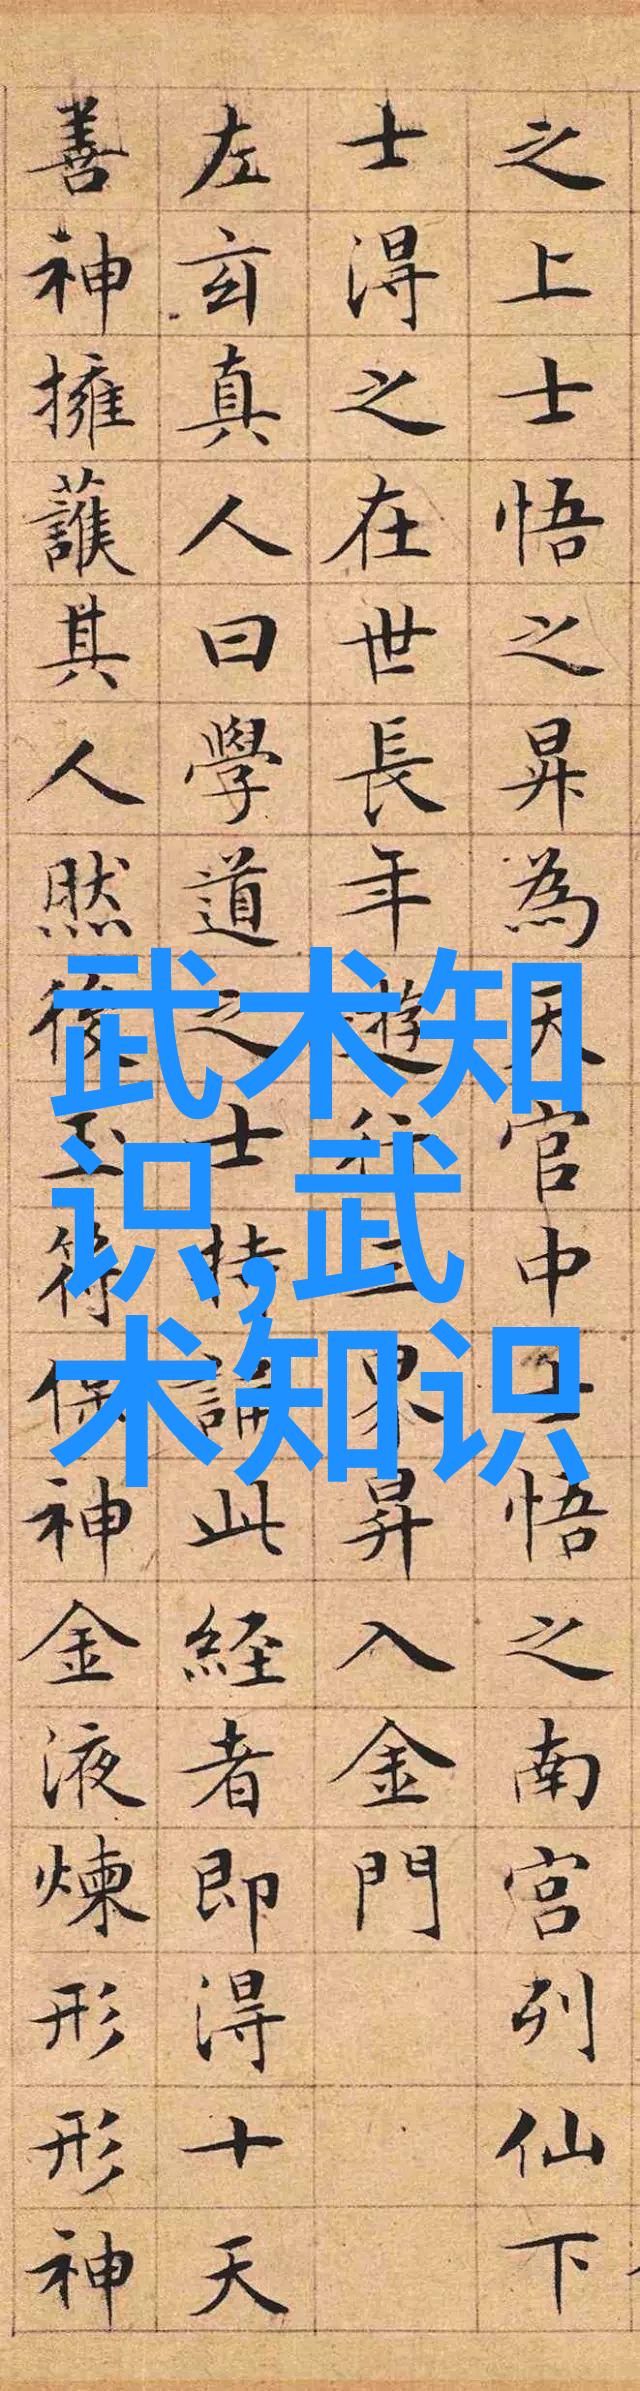 之上士悟之昇為天官中士悟之南宮列仙下
士淂之在世長年遊行三界昇入金門
左玄真人曰學道之士持誦此經者即淂十天
善神擁護其人然後玉符保神金液煉形形神
武术知
识,武
术知识